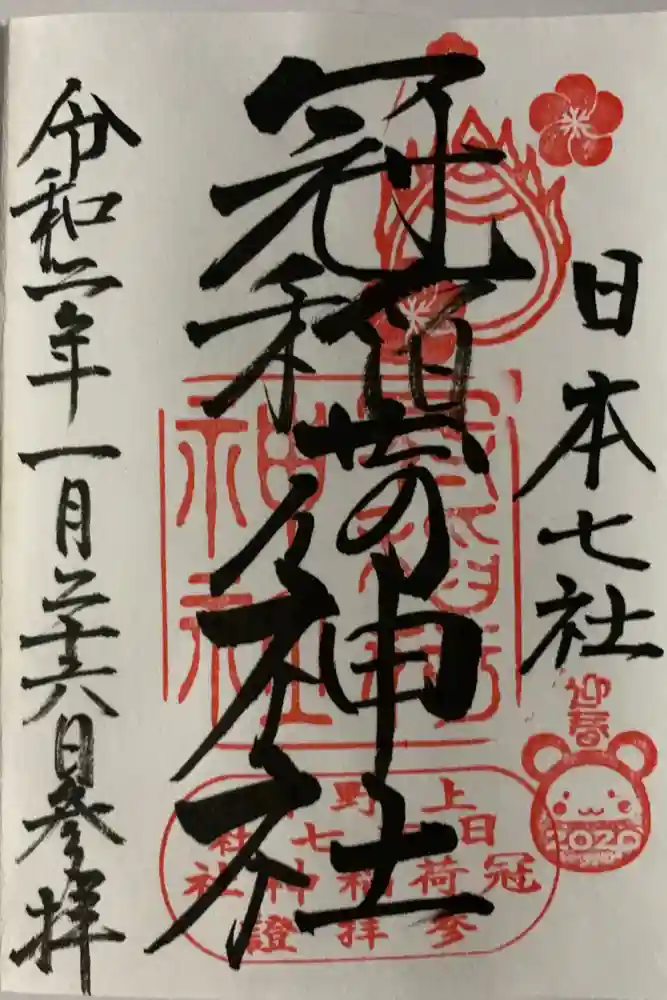 日本七社
迎春
2020
冠稲荷神社
神社
上野
日本七社
冠稲荷神社
参拝證
令和二年一月二十六日参拝